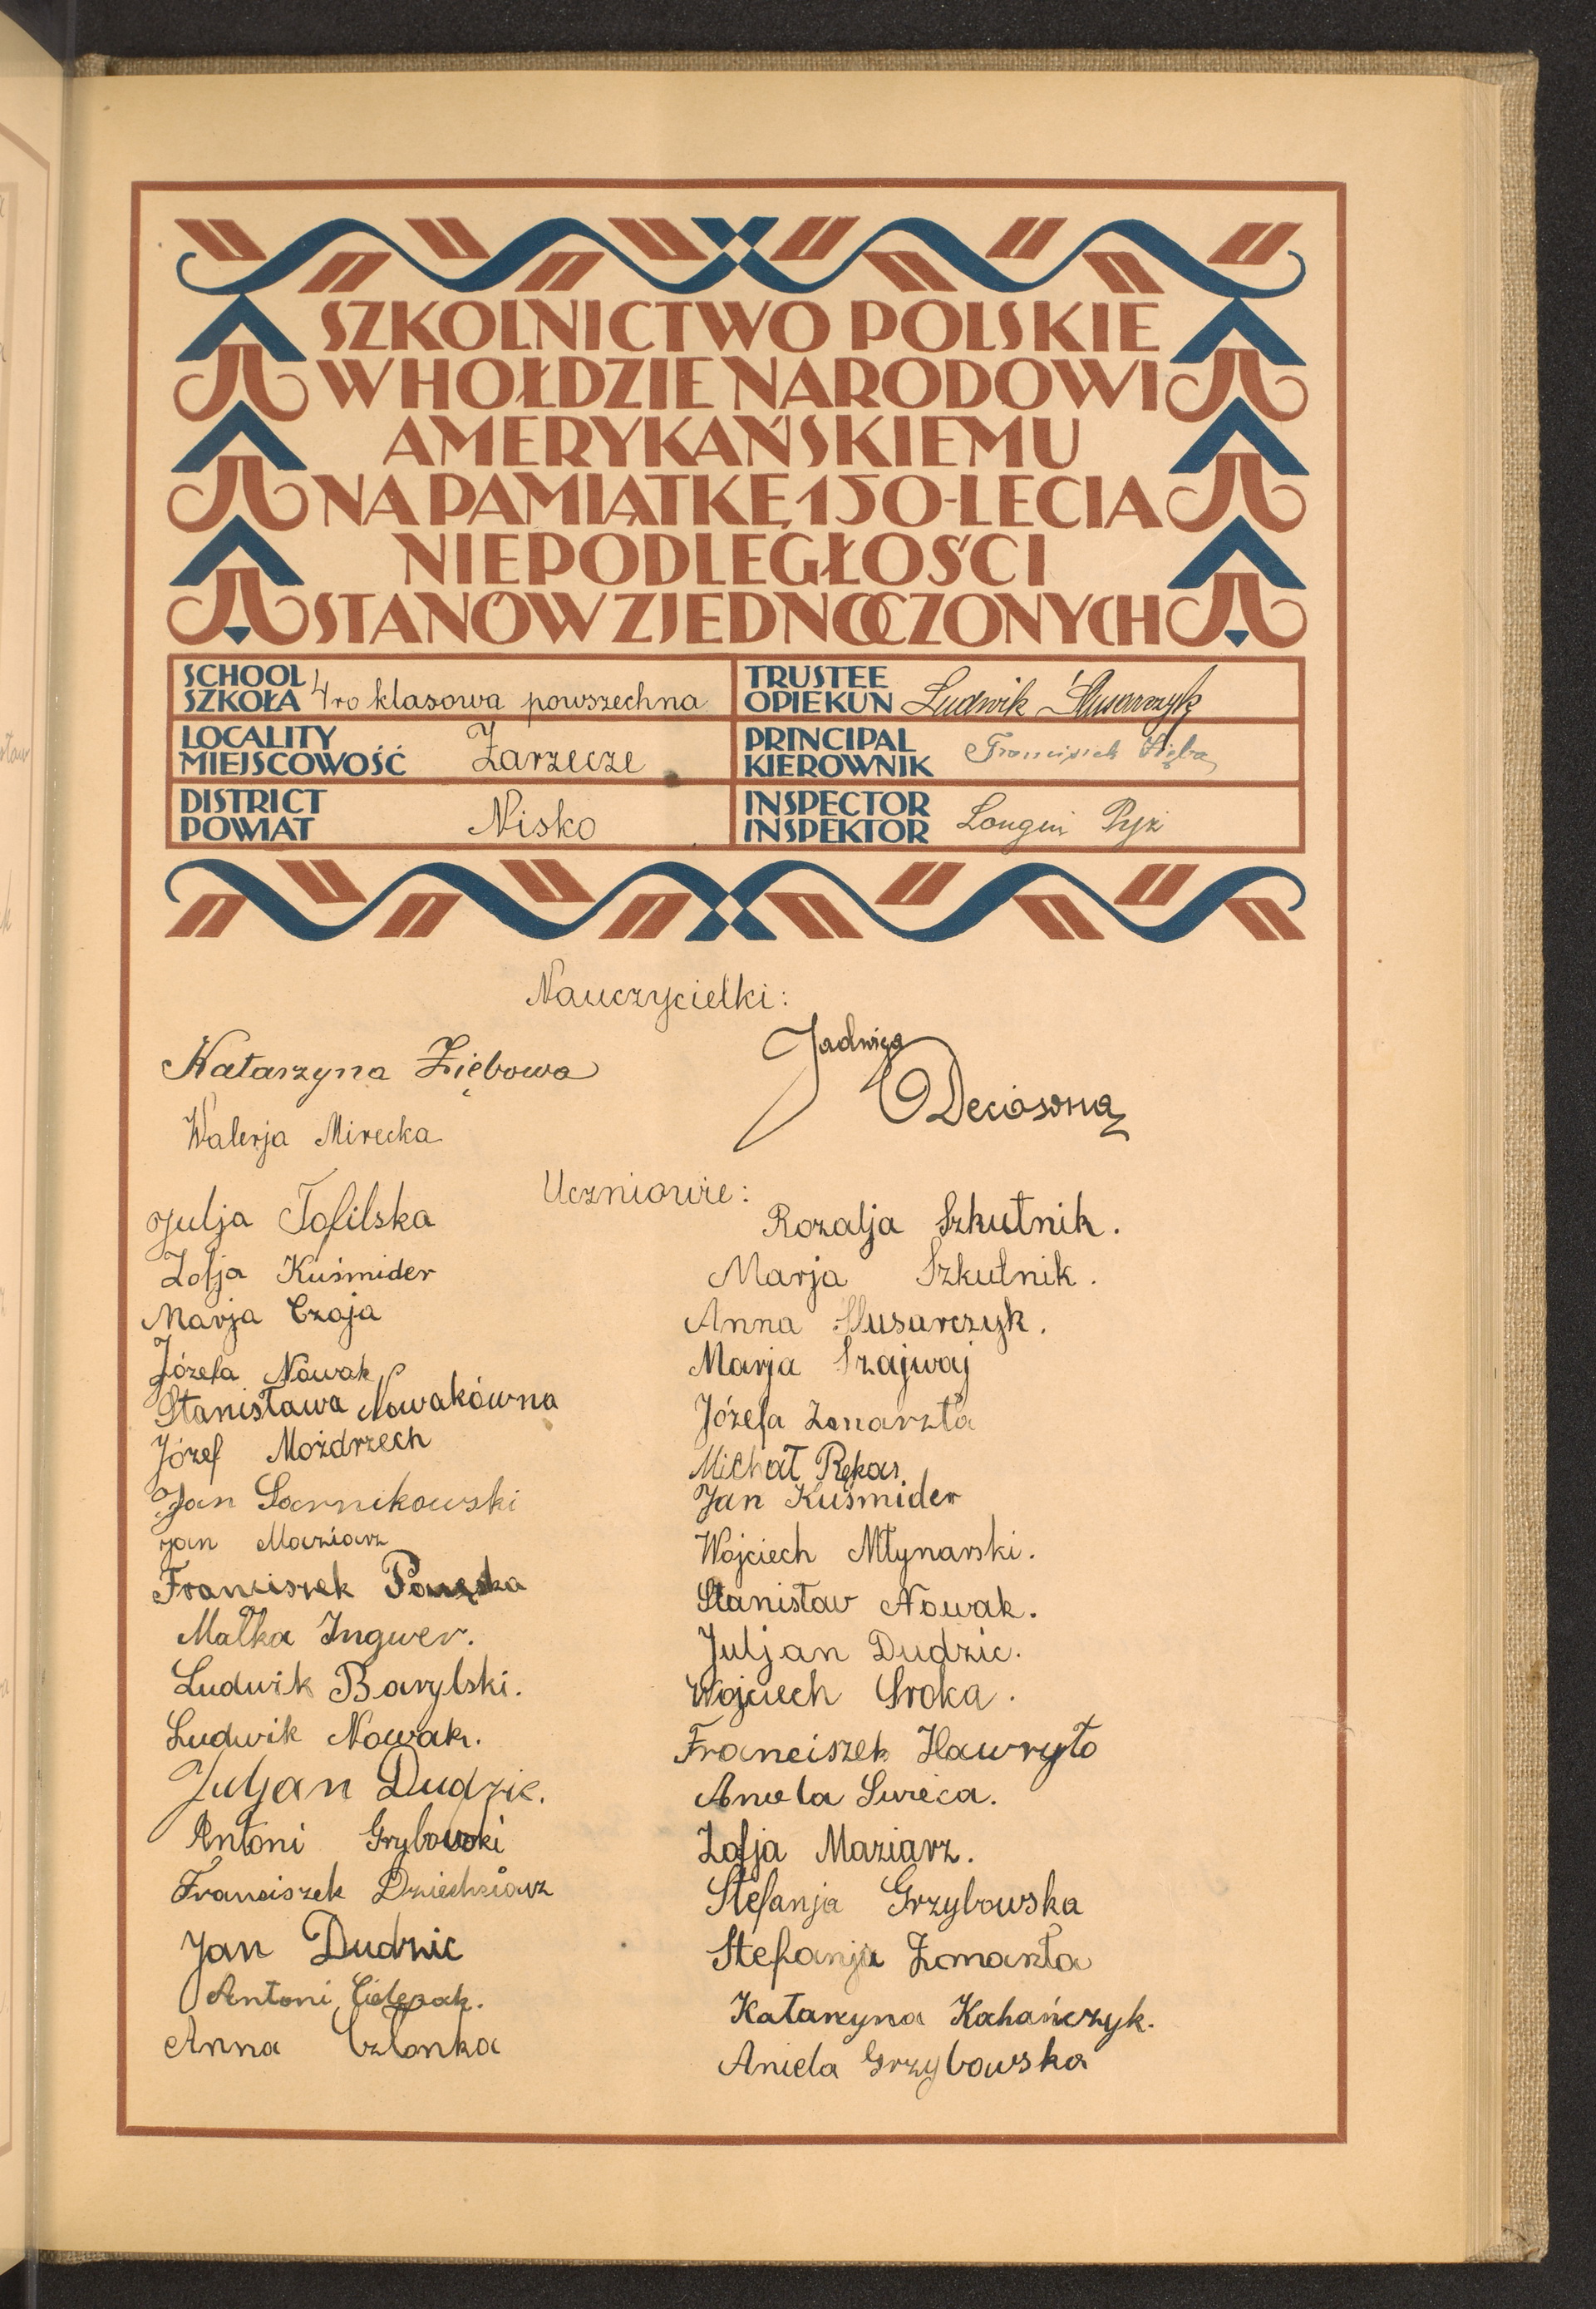 SZKOLNICTWO POLSKIE
W HOŁDZIE NARODOWI
AMERYKAŃSKIEMU
NA PAMIĄTKĘ 150-LECIA
NIEPODLEGŁOŚCI
STANÓW ZJEDNOCZONYCH
SCHOOL
SZKOŁA 4ro klasowa powszechna
TRUSTEE
OPIEKUN Ludwik Ślusarczyk
LOCALITY
MIEJSCOWOŚĆ Zarzecze
PRINCIPAL
KIEROWNIK Franciszek Zięba
DISTRICT
POWIAT Nisko
INSPECTOR
INSPEKTOR Longin Pyż
Nauczycielki:
Katarzyna Ziębowa
Walerja Mirecka
Jadwiga
Uczniowie:
Julja Tofilska
Zofja Kuśmider
Marja Czaja
Józefa Nowak
Stanisława Nowakówna
Józef Moździrzech
Jan Sarnikowski
Jan Maziarz
Franciszek
Małka Ingwer.
Ludwik Barylski.
Ludwik Nowak.
Juljan Dudzic.
Antoni Grybowski
Franciszek Dziechciarz
Jan Dudzic
Antoni
Anna Członka
Rozalja Szkutnik.
Marja Szkutnik.
Anna Ślusarczyk.
Marja Szajwaj
Józefa
Michał Rękas
Jan Kuśmider
Wojciech Młynarski.
Stanisław Nowak.
Juljan Dudzic.
Wojciech Sroka.
Franciszek Hawryło
Aniela
Zofja Maziarz.
Stefanja Grzybowska
Stefanja
Katarzyna Kahańczyk.
Aniela Grzybowska